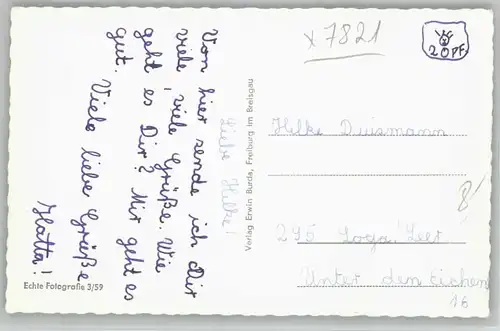 Liebe Hilke!
Von hier sende ich Dir
viele, viele Grüße. Wie
geht es Dir? Mir geht es
gut. Viele liebe Grüße
Hatta!
Echte Fotografie 3/59
Verlag Erwin Burda, Freiburg im Breisgau
x 7821
20PF
Hilke Duismann
295 Loga/Leer
Unter den Eichen
16
8/